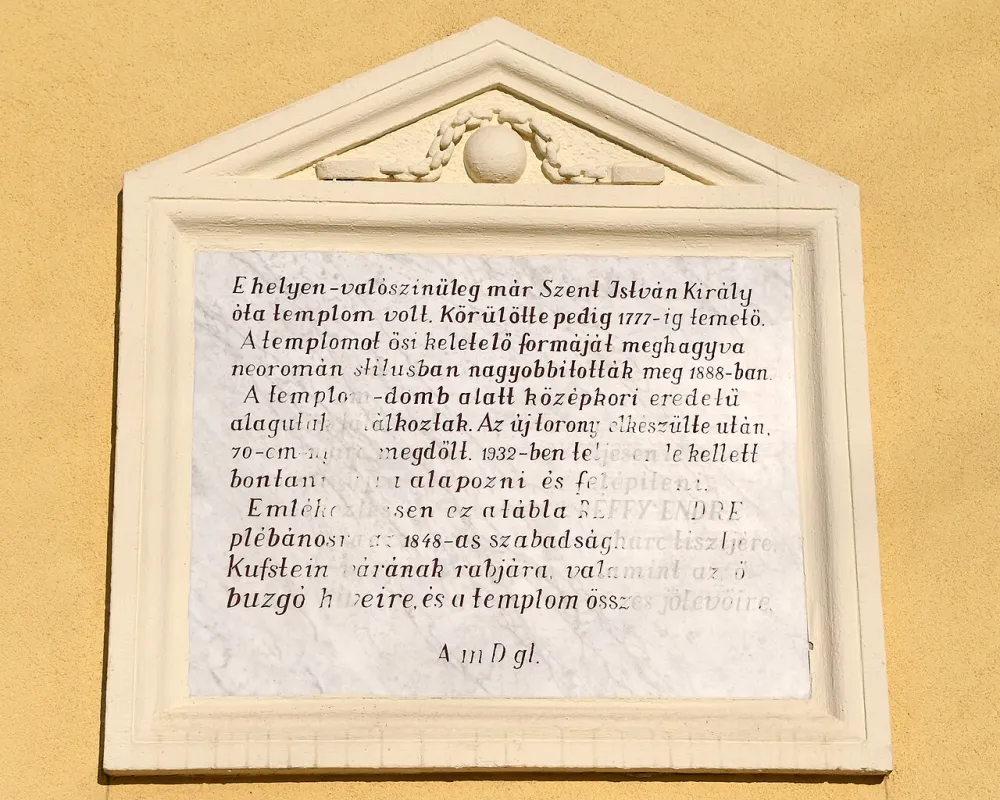 E helyen-valószinüleg már Szent István Király
óta templom volt. Körülötte pedig 1777-ig temető.
A templomot ősi keletelő formáját meghagyva
neoromán stilusban nagyobbitották meg 1888-ban.
A templom-domb alatt középkori eredetü
alagutak találkoztak. Az új torony elkészülte után,
70-cm-nyire megdőlt. 1932-ben teljesen le kellett
bontani, újra alapozni és felépiteni.
Emlékeztessen ez a tábla BEFFY ENDRE
plébánosra az 1848-as szabadságharc tisztjére,
Kufstein várának rabjára, valamint az ő
buzgó hiveire, és a templom összes jótevőire.
A m D gl.